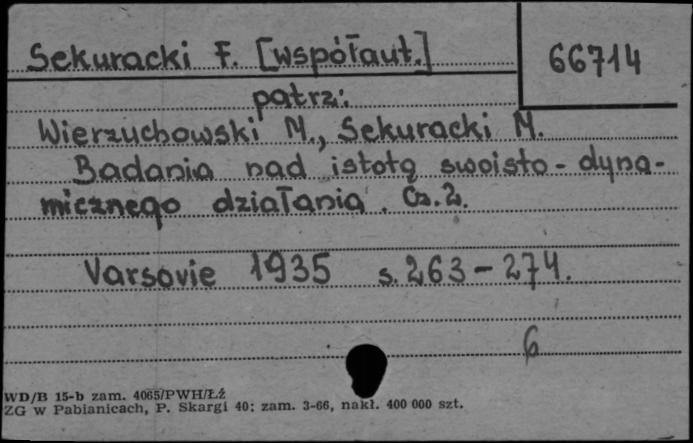 Sekuracki F. [współaut.]
66714
patrz:
Wierzuchowski M., Sekuracki M.
Badania nad istotą swoisto-dyna-
micznego działania. Cz. 2.
Varsovie 1935 s. 263-274.
6
WD/B 15-b zam. 4065/PWH/Łź
ZG w Pabianicach, P. Skargi 40; zam. 3-66, nakł. 400 000 szt.